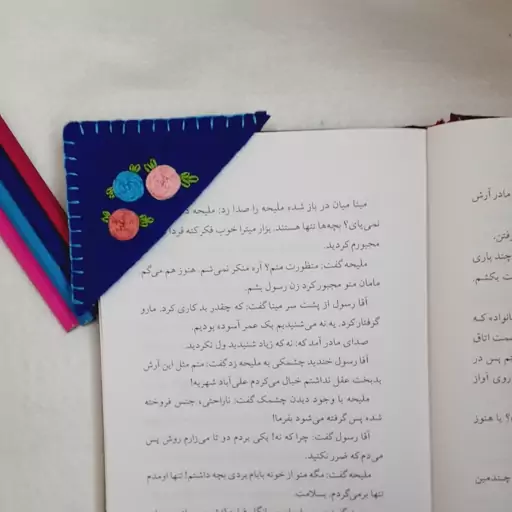 مینا میان در باز شده ملیحه را صدا زد: ملیحه
نمی‌یای؟ بچه‌ها تنها هستند. بزار میترا خوب فکر کنه فردا
مجبورم کردید.
ملیحه گفت: منظورت منم؟ آره منکر نمی‌شم. هنوز هم می‌گم
مامان منو مجبور کرد زن رسول بشم.
آقا رسول از پشت سر مینا گفت: که چقدر بد کاری کرد. مارو
گرفتار کرد. یه نه می‌شنیدیم یک عمر آسوده بودیم.
صدای مادر آمد که: نه که زیاد شنیدید ول نکردید.
آقا رسول خندید چشمکی به ملیحه زد گفت: منم مثل این آرش
بدبخت عقل نداشتم خیال می‌کردم علی‌آباد شهریه!
ملیحه با وجود دیدن چشمک گفت: ناراحتی، جنس فروخته
شده پس گرفته می‌شود بفرما!
آقا رسول گفت: چرا که نه! یکی بردم دو تا می‌زارم روش پس
می‌دم که ضرر نکنید.
ملیحه گفت: مگه منو از خونه بابام بردی بچه داشتم! تنها اومدم
تنها برمی‌گردم. بسلامت.
مادر آرش
رفتن.
چند باری
ت بکشم.
انواده که
سمت اتاق
م پس در
روی آواز
؟ یا هنوز
چندمین